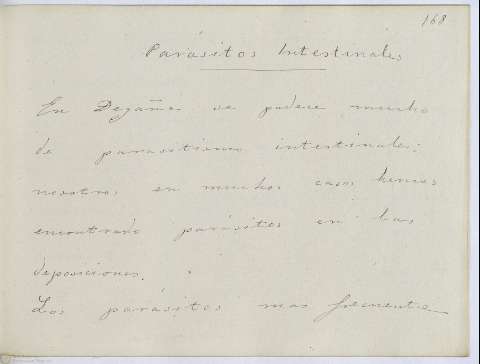 168
Parásitos Intestinales
En Degaña se padece mucho
de parasitismo intestinal:
nosotros en muchos casos hemos
encontrado parásitos en las
deposiciones.
Los parásitos mas frecuente